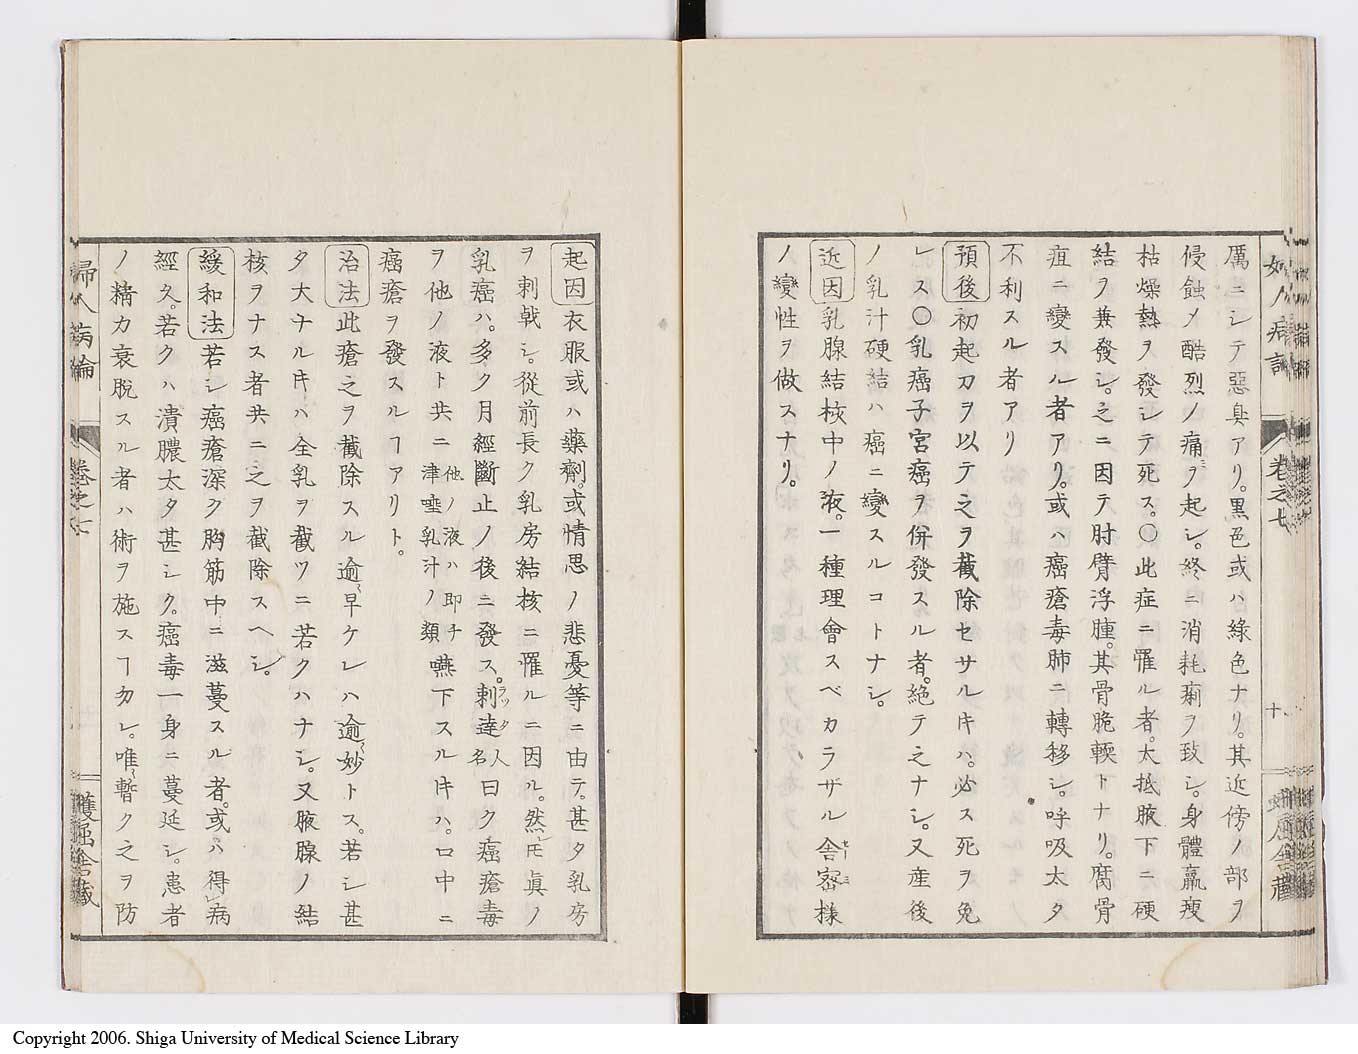 厲ニシテ惡臭アリ。黒色或ハ綠色ナリ。其近傍ノ部ヲ
侵蝕メ酷烈ノ痛ヲ起シ。終ニ消耗痢ヲ致シ。身體羸瘦
枯燥熱ヲ發シテ死ス。〇此症ニ罹ル者。太抵腋下ニ硬
結ヲ兼發シ。之ニ因テ肘臂浮腫。其骨脆輭トナリ。腐骨
疽ニ變スル者アリ。或ハ癌瘡毒肺ニ轉移シ。呼吸太タ
不利スル者アリ
預後初起刀ヲ以テ之ヲ截除セサルキハ。必ス死ヲ免
レス〇乳癌子宮癌ヲ併發スル者。絶テ之ナシ。又産後
ノ乳汁硬結ハ癌ニ變スルコトナシ。
近因乳腺結核中ノ液。一種理會スベカラザル舎密様
セーミ
ノ變性ヲ做スナリ。
起因衣服或ハ藥劑。或情思ノ悲憂等ニ由テ。甚タ乳房
ヲ刺戟シ。從前長ク乳房結核ニ罹ルニ因ル。然ㇾ𪜈眞ノ
乳癌ハ。多ク月經斷止ノ後ニ發ス。剌達人名曰ク癌瘡毒
ラッタ
ヲ他ノ液ト共ニ他ノ液ハ即チ津唾乳汁ノ類嚥下スルキハ。口中ニ
癌瘡ヲ發スルヿアリト。
治法此瘡之ヲ截除スル逾早ケレハ逾妙トス。若シ甚
タ大ナルキハ全乳ヲ截ツニ若クハナシ。又腋腺ノ結
核ヲナス者共ニ之ヲ截除スヘシ。
緩和法若シ癌瘡深ク胸筋中ニ滋蔓スル者。或ハ得病
經久。若クハ潰膿太タ甚シク。癌毒一身ニ蔓延シ。患者
ノ精力衰脱スル者ハ術ヲ施スヿ勿レ。唯暫ク之ヲ防
婦人病論
卷之七
護屈舎藏